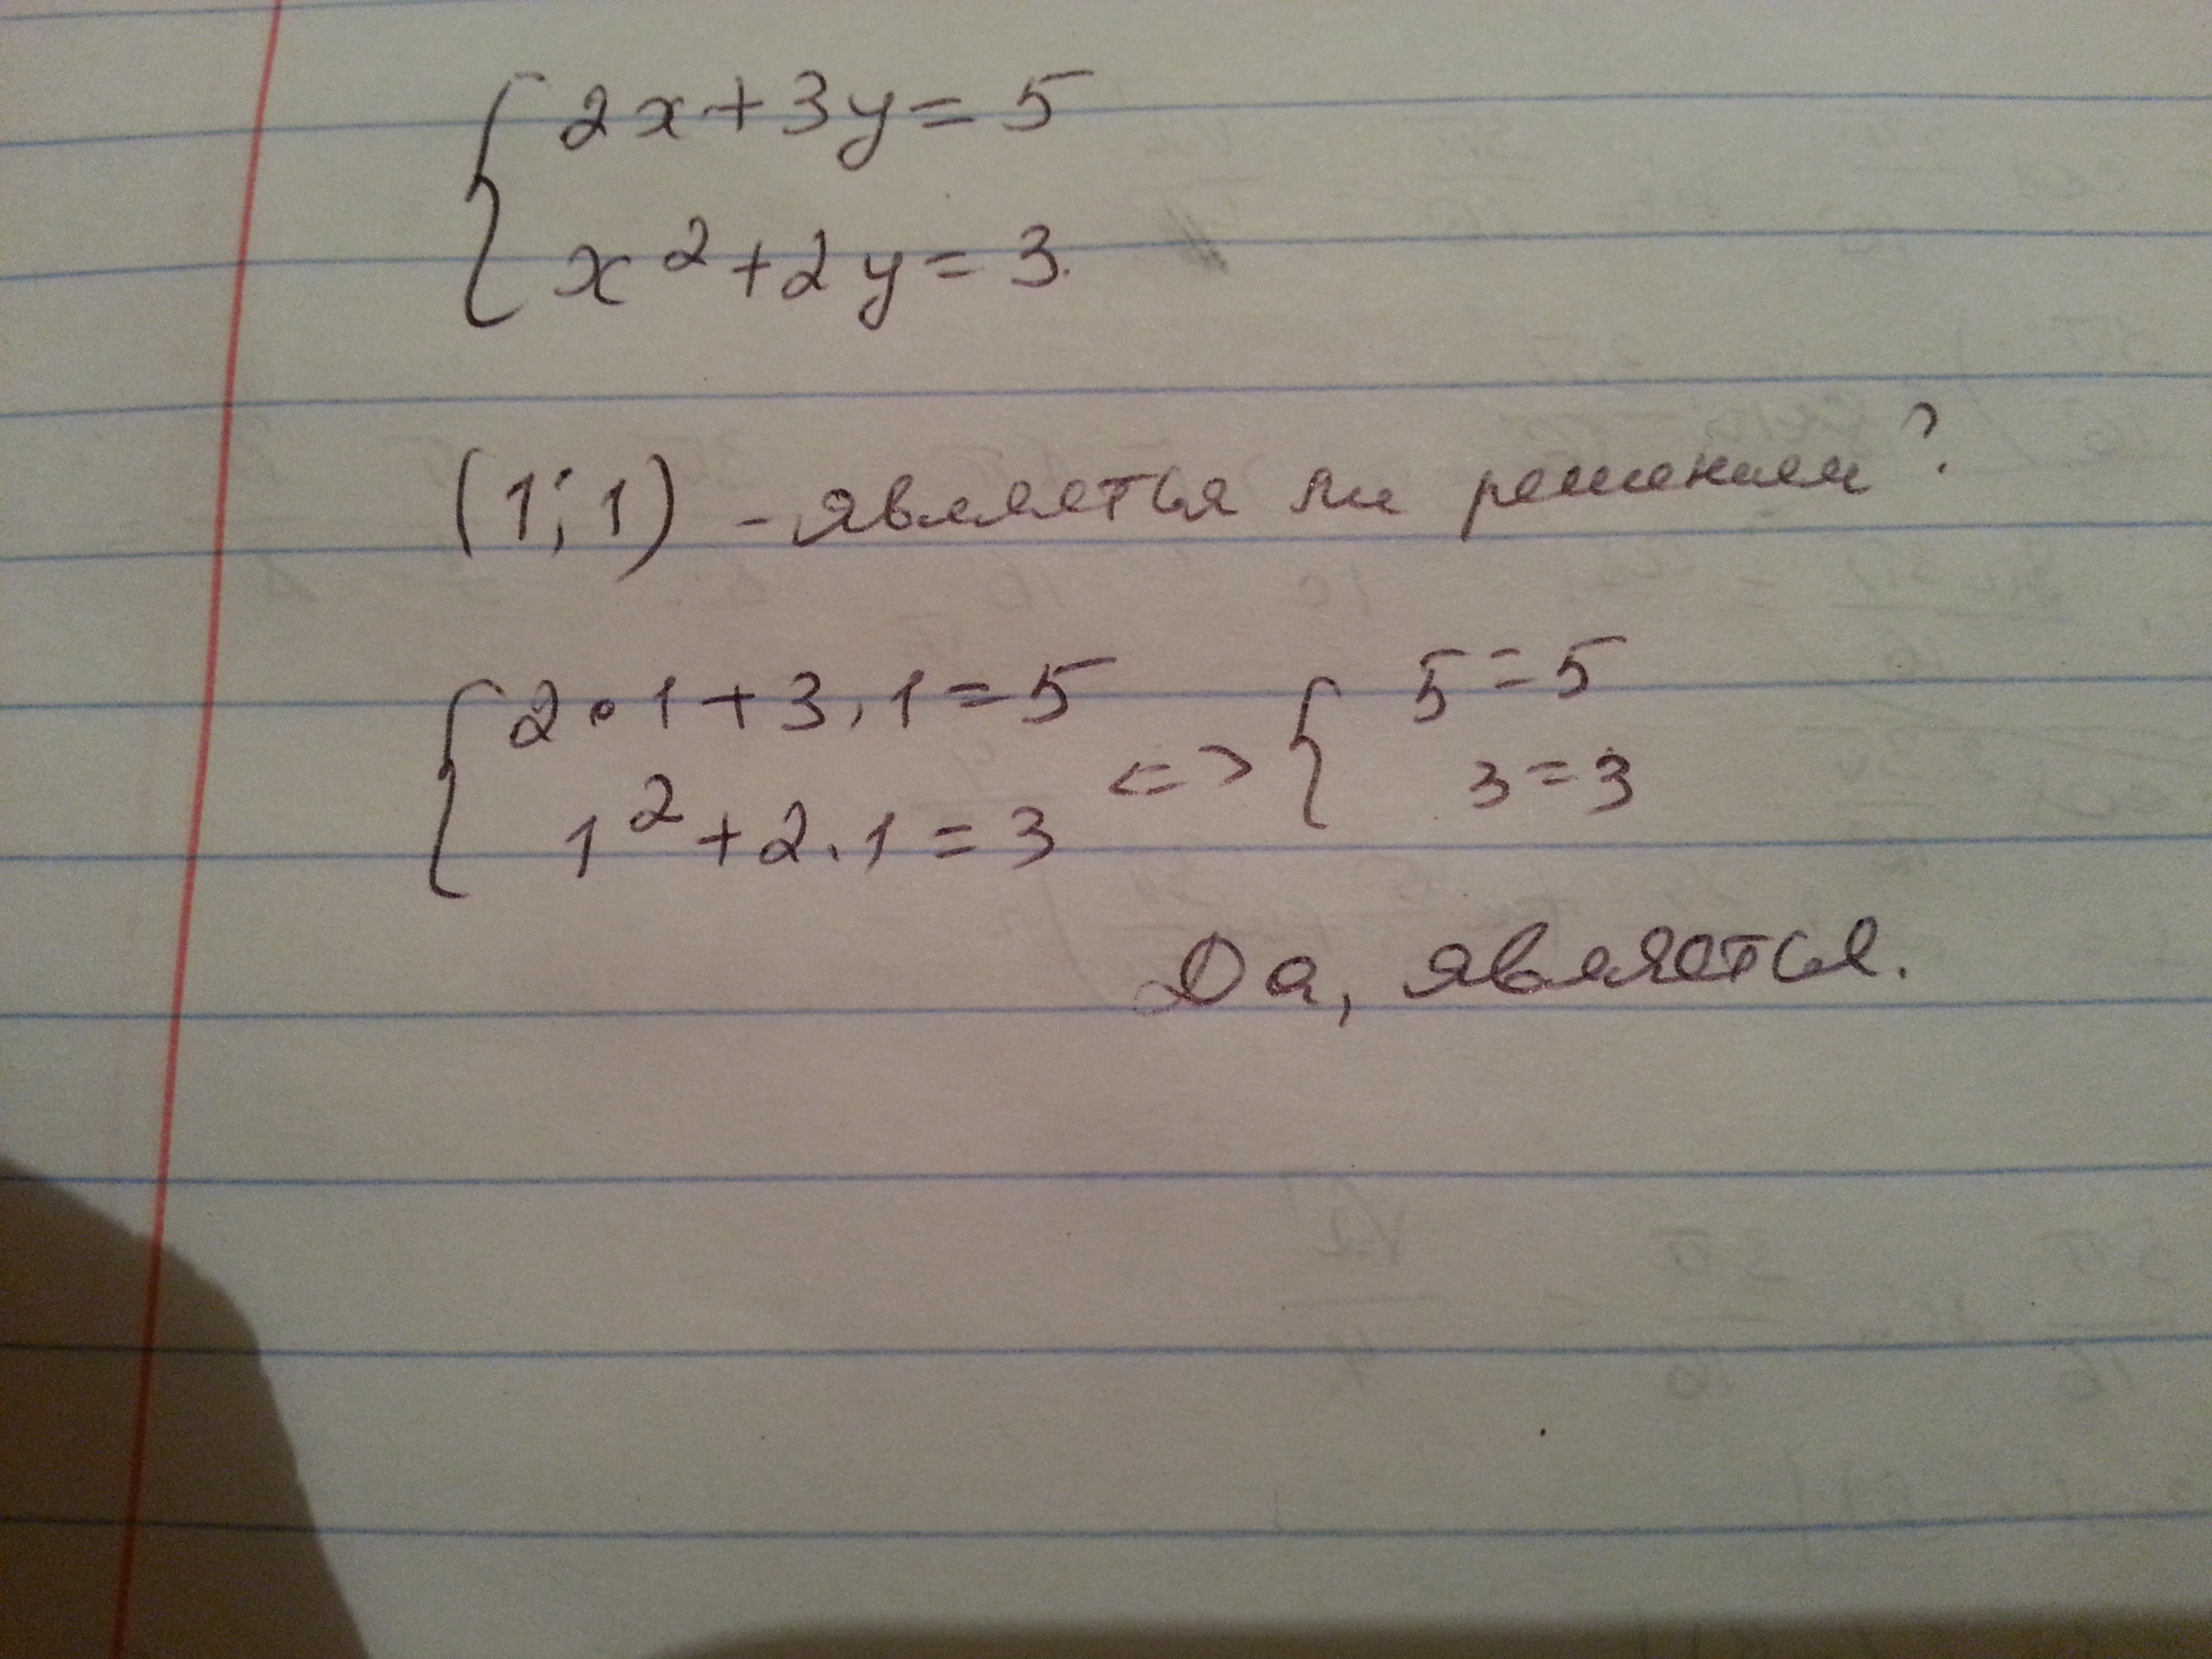 { 2x + 3y = 5
x² + 2y = 3.
(1; 1) - является ли решением?
{ 2 · 1 + 3 · 1 = 5
1² + 2 · 1 = 3
<=> { 5 = 5
3 = 3
Да, является.